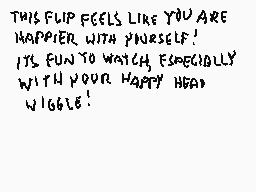 THIS FLIP FEELS LIKE YOU ARE
HAPPIER WITH YOURSELF!
ITS FUN TO WATCH, ESPECIALLY
WITH YOUR HAPPY HEAD
WIGGLE!